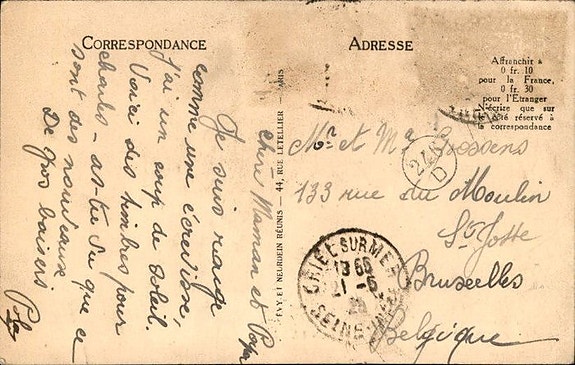 CORRESPONDANCE
Chère Maman et Papa
Je suis rouge
comme une écrevisse,
j'ai un coup de soleil.
Voici des timbres pour
Charles - as-tu vu que ce
sont des nouveaux
De gros baisers
LÉVY ET NEURDEIN RÉUNIS — 44, RUE LETELLIER — PARIS
ADRESSE
Affranchir à
0 fr. 10
pour la France,
0 fr. 30
pour l'Etranger
N'écrire que sur
le côté réservé à
la correspondance
Mr et Me Gossens
133 rue du Moulin
St Josse
Bruxelles
Belgique
248
D
CRIEL SUR MER
21 -6
SEINE-INFRE